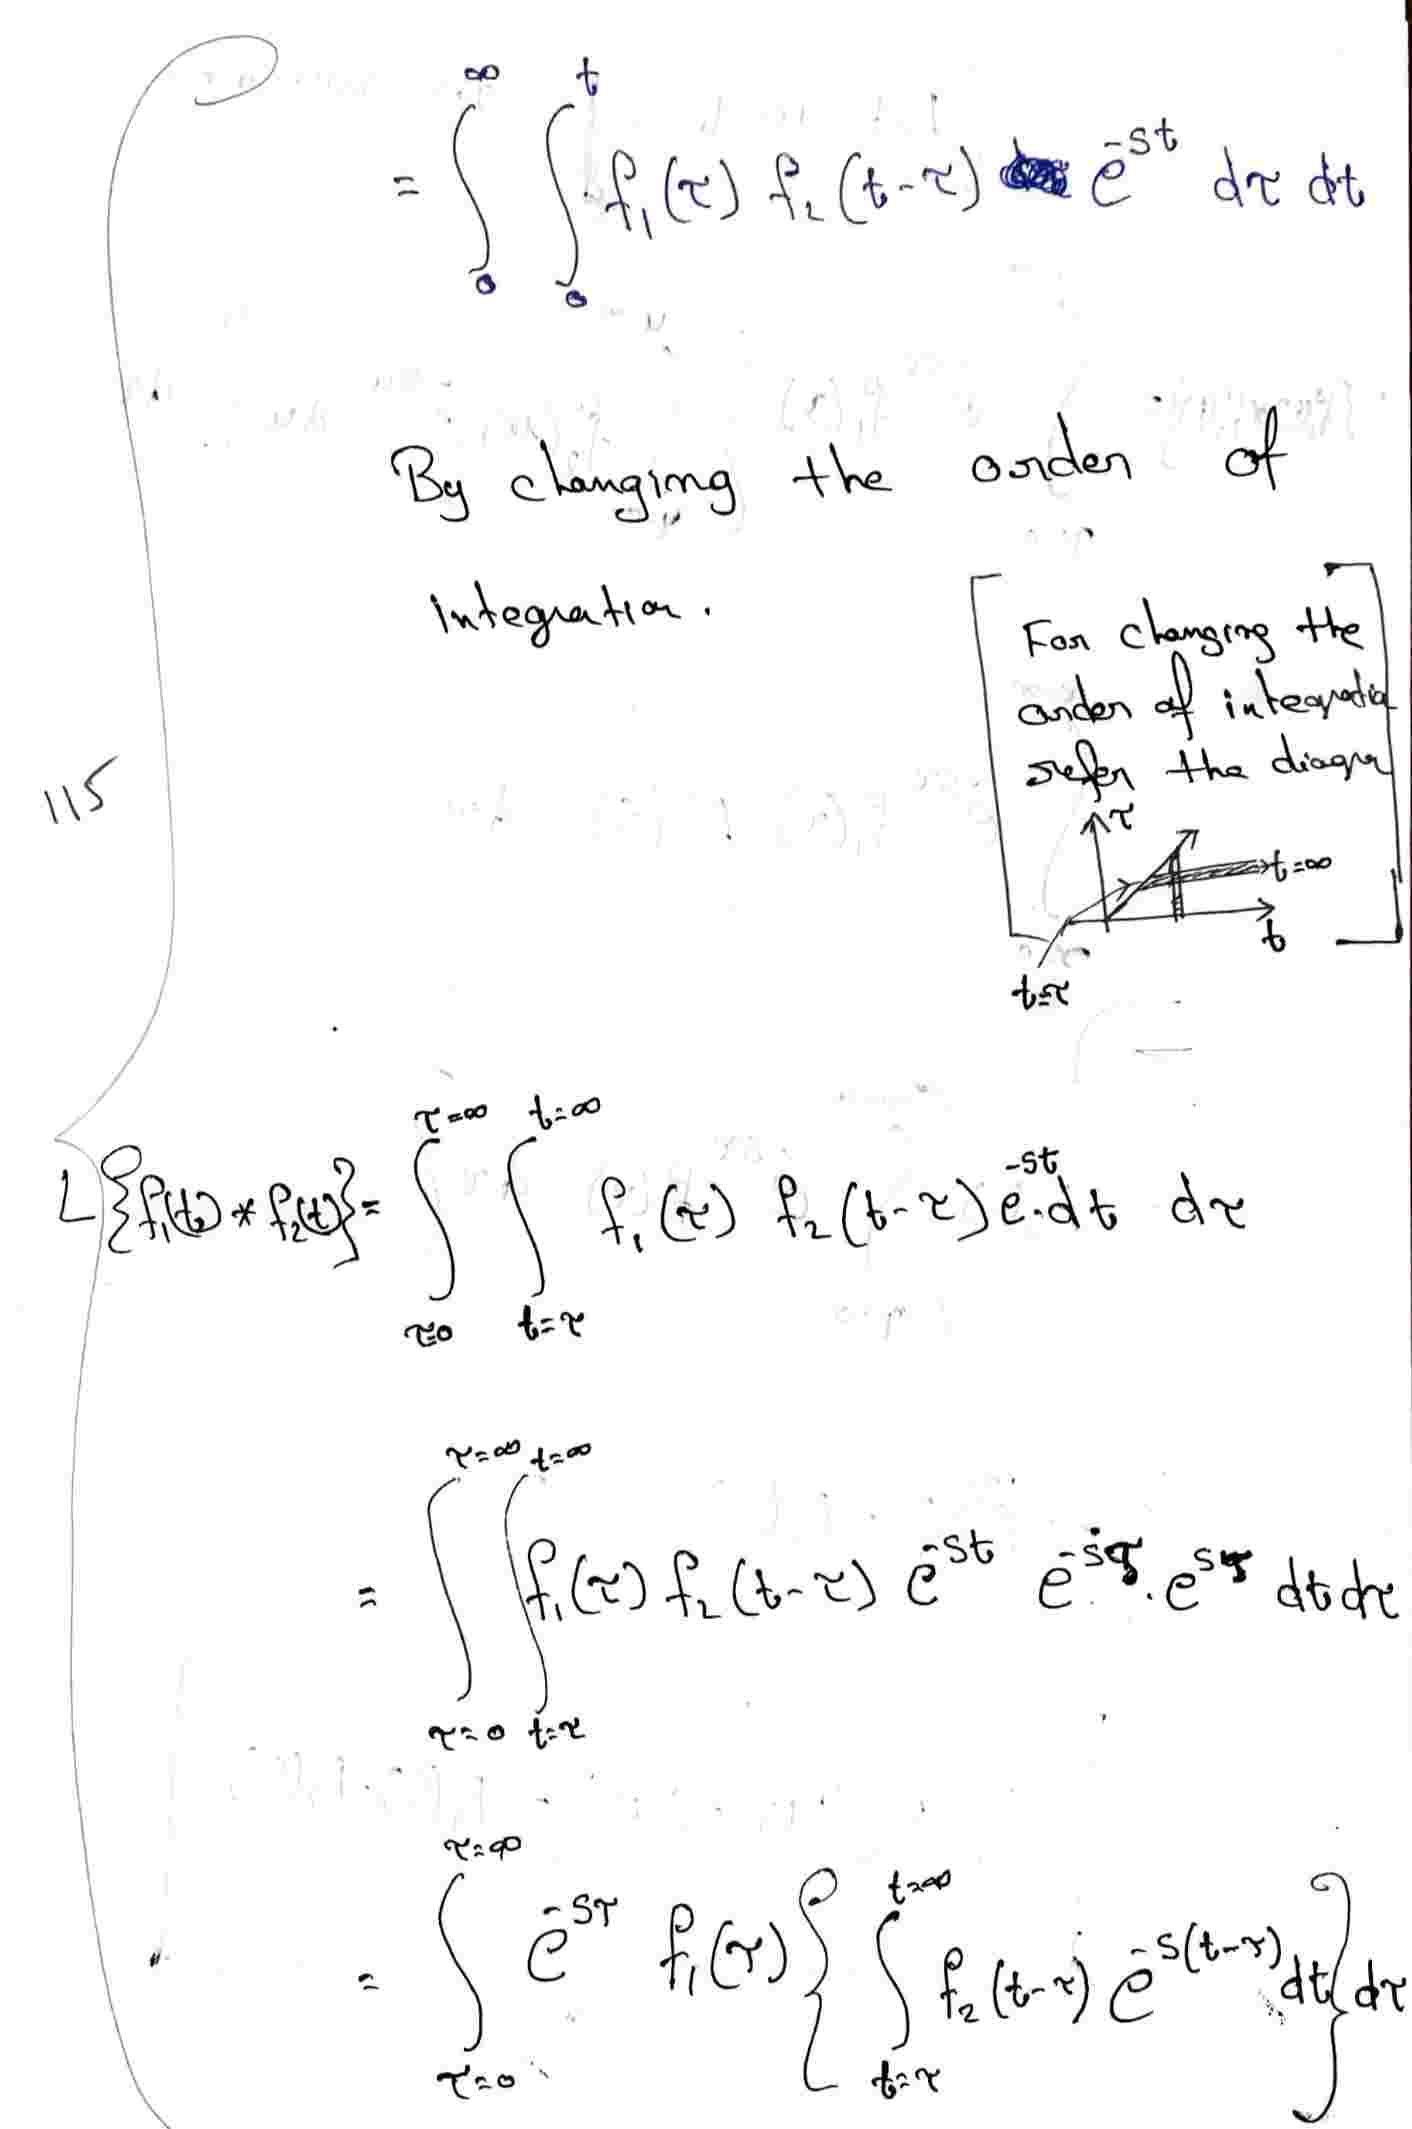 = ∫₀^∞ ∫₀^t f₁(τ) f₂(t-τ) e^{-st} dτ dt
By changing the order of
integration.
For changing the
order of integratio
refer the diagr
τ
t=∞
t
t=τ
115
L{f₁(t) * f₂(t)} = ∫_{τ=0}^{τ=∞} ∫_{t=τ}^{t=∞} f₁(τ) f₂(t-τ) e^{-st}.dt dτ
= ∫_{τ=0}^{τ=∞} ∫_{t=τ}^{t=∞} f₁(τ) f₂(t-τ) e^{-st} e^{-sτ}.e^{sτ} dt dτ
= ∫_{τ=0}^{τ=∞} e^{-sτ} f₁(τ) { ∫_{t=τ}^{t=∞} f₂(t-τ) e^{-s(t-τ)} dt } dτ